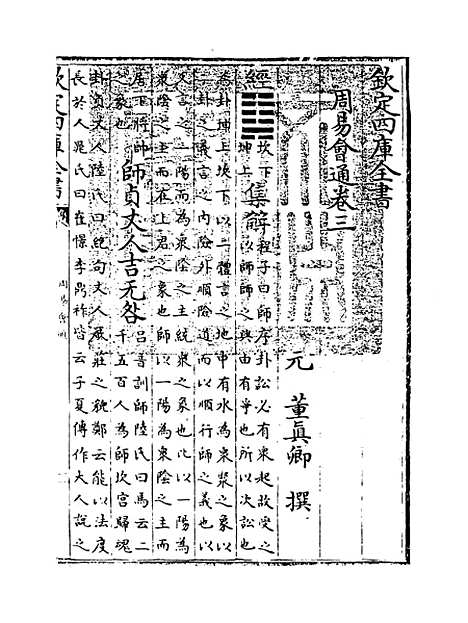 欽定四庫全書
周易會通卷三
元 董真卿 撰
經䷆坎下坤上 集解 程子曰師序卦訟必有衆起故受之以師師之興由有爭也所以次訟也
為卦坤上坎下以二體言之地中有水為衆聚之象以
二卦之義言之内險外順險道而以順行師之義也以
爻言之一陽而為衆陰之主統衆之象也比以一陽為
衆陰之主而在上君之象也師以一陽為衆陰之主而
居下將帥之象也 師貞丈人吉无咎 吕音訓師陸氏曰馬云二千五百人為師坎宫歸魂
卦貞丈人陸氏曰絶句丈人嚴莊之稱鄭云能以法度
長於人晁氏曰崔憬李鼎祚皆云子夏傳作大人説之
欽定四庫全書
周易會通